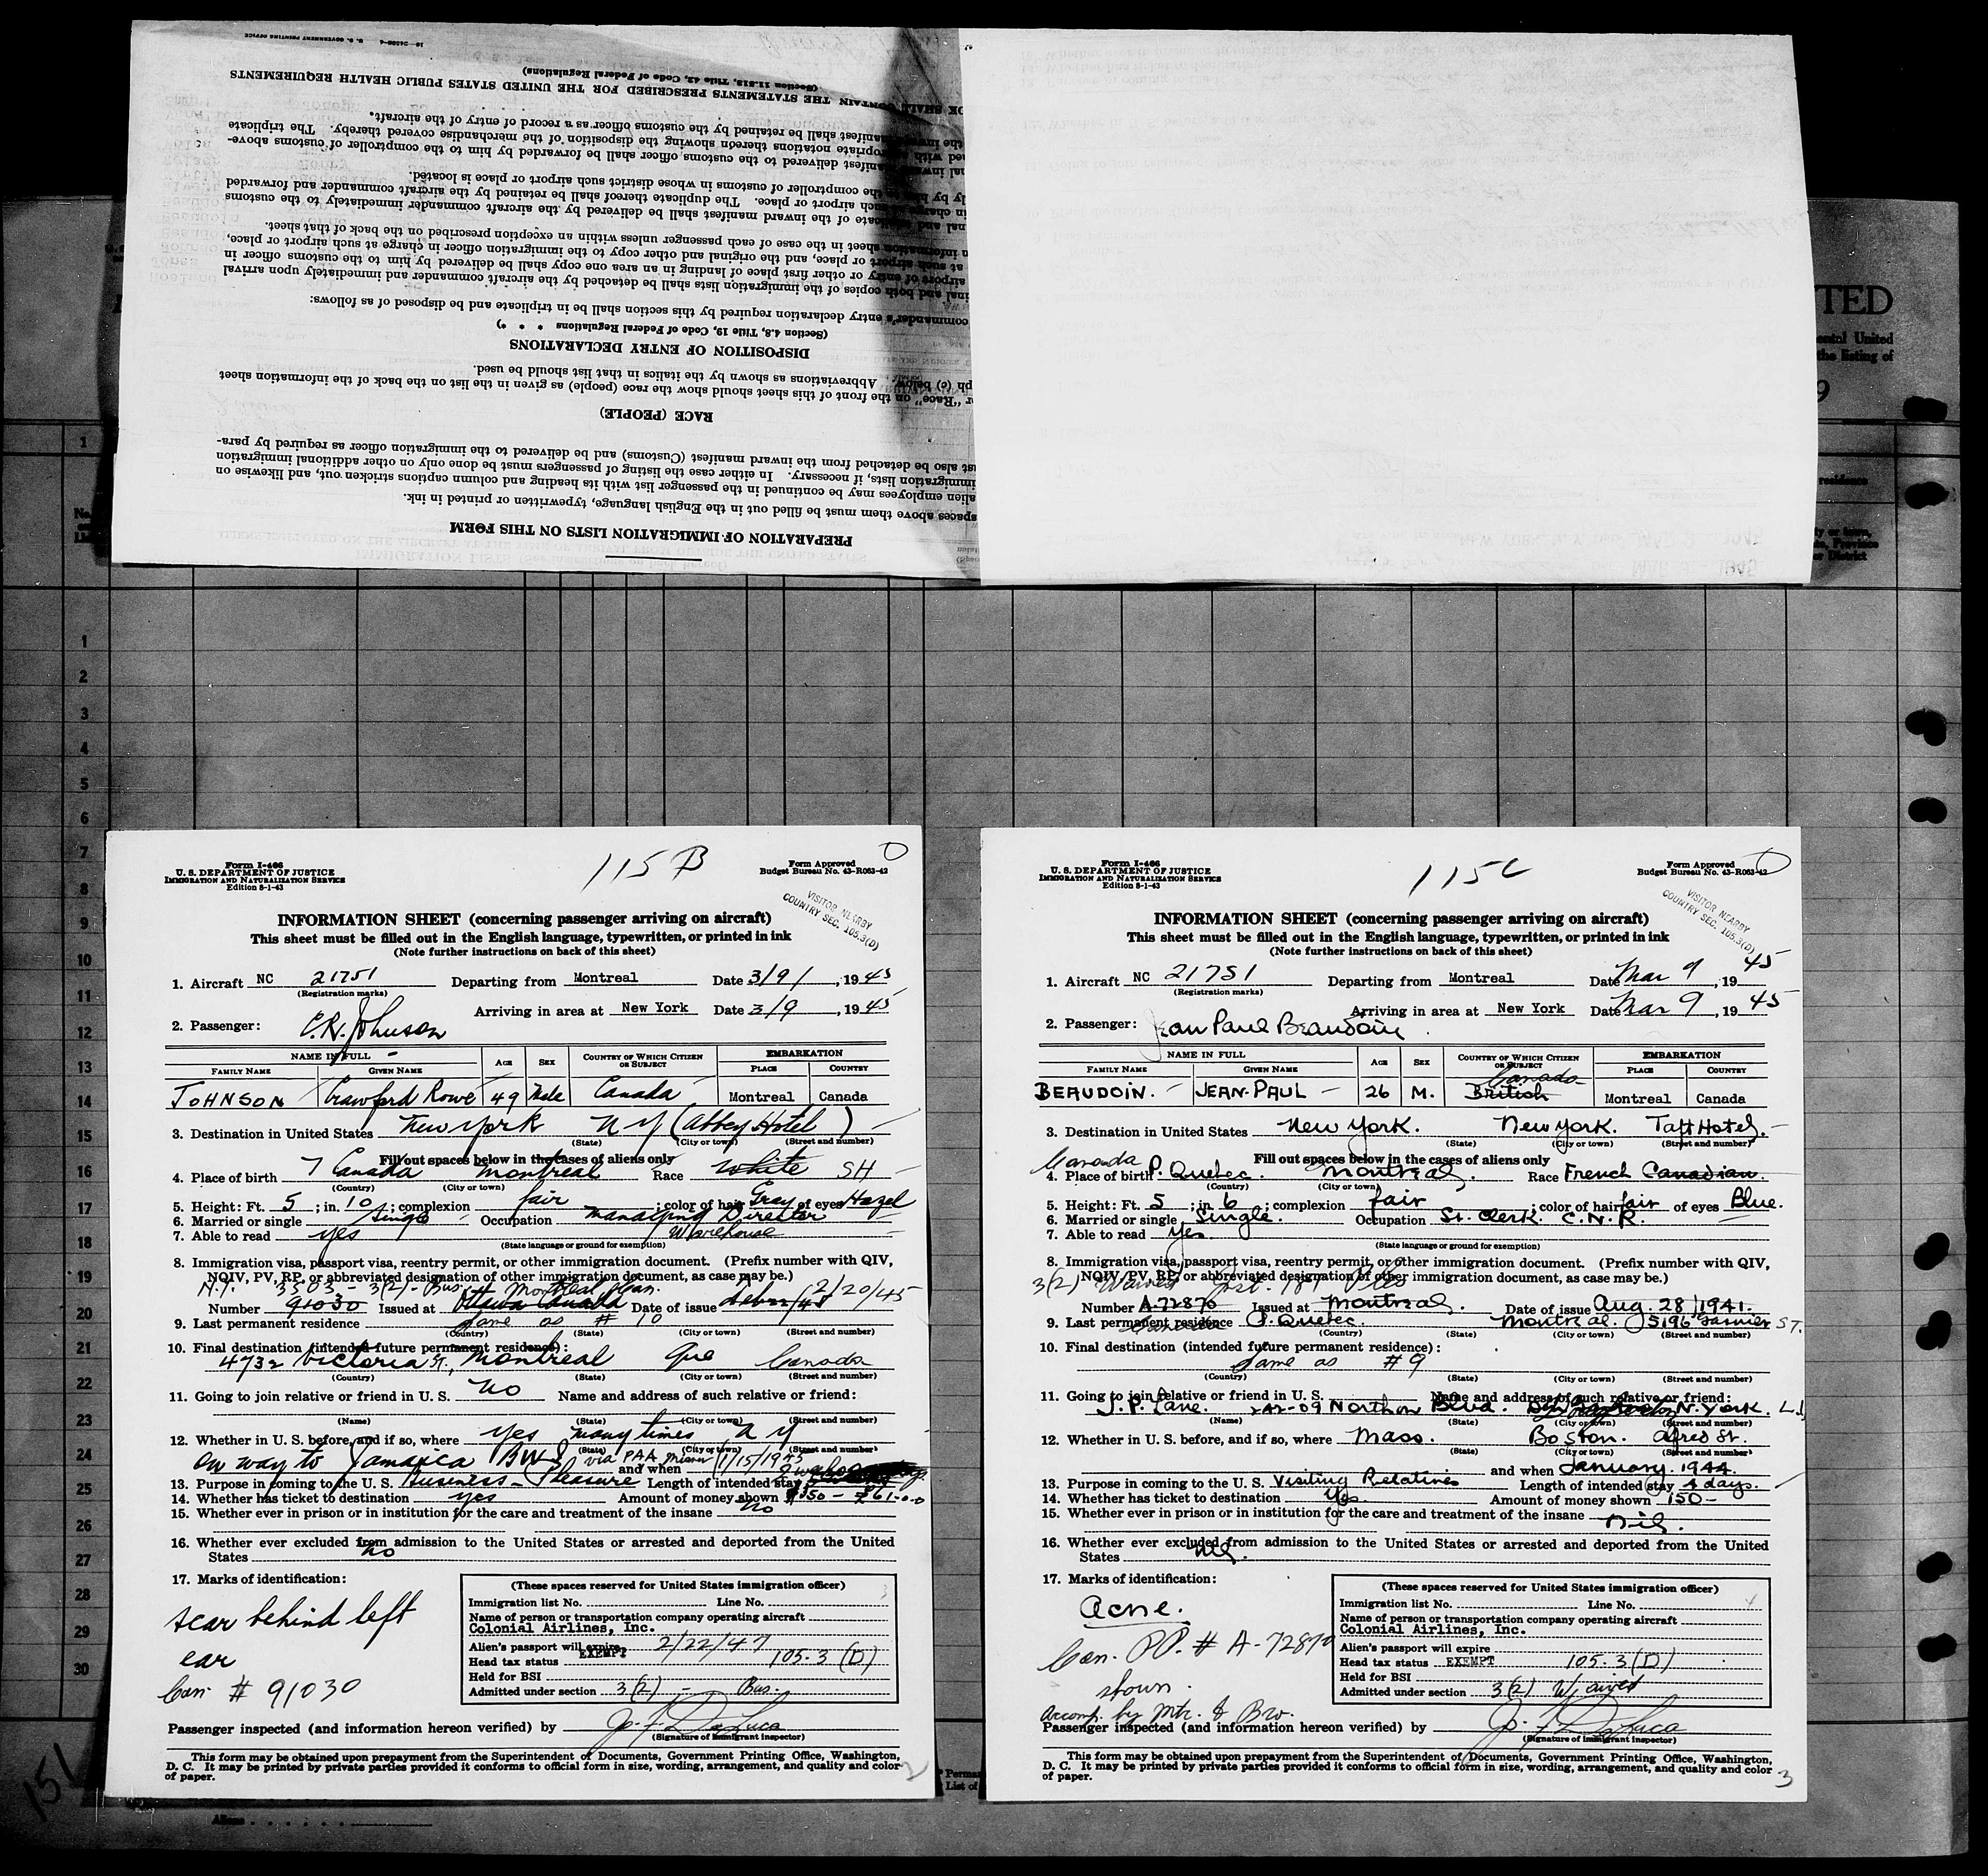 16—24508-4 U. S. GOVERNMENT PRINTING OFFICE
(Section 11.513, Title 42, Code of Federal Regulations)
SHALL CONTAIN THE STATEMENTS PRESCRIBED FOR THE UNITED STATES PUBLIC HEALTH REQUIREMENTS
manifest shall be retained by the customs officer as a record of entry of the aircraft.
appropriate notations thereon showing the disposition of the merchandise covered thereby. The triplicate
manifest delivered to the customs officer shall be forwarded by him to the comptroller of customs above-
the comptroller of customs in whose district such airport or place is located.
such airport or place. The duplicate thereof shall be retained by the aircraft commander and forwarded
of the inward manifest shall be delivered by the aircraft commander immediately to the customs
information sheet in the case of each passenger unless within an exception prescribed on the back of that sheet.
at such airport or place, and the original and other copy to the immigration officer in charge at such airport or place,
airport of entry or other first place of landing in an area one copy shall be delivered by him to the customs officer in
and both copies of the immigration lists shall be detached by the aircraft commander and immediately upon arrival
commander's entry declaration required by this section shall be in triplicate and be disposed of as follows:
(Section 4.8, Title 19, Code of Federal Regulations * * *)
DISPOSITION OF ENTRY DECLARATIONS
(c) below. Abbreviations as shown by the italics in that list should be used.
"Race" on the front of this sheet should show the race (people) as given in the list on the back of the information sheet
RACE (PEOPLE)
also be detached from the inward manifest (Customs) and be delivered to the immigration officer as required by para-
immigration lists, if necessary. In either case the listing of passengers must be done only on other additional immigration
alien employees may be continued in the passenger list with its heading and column captions stricken out, and likewise on
spaces above them must be filled out in the English language, typewritten or printed in ink.
PREPARATION OF IMMIGRATION LISTS ON THIS FORM
TED
ental United
the listing of
9
residence
1
1
2
3
4
5
6
7
8
9
10
11
12
13
14
15
16
17
18
19
20
21
22
23
24
25
26
27
28
29
30
151
Aliens
Form I-466
U. S. DEPARTMENT OF JUSTICE
IMMIGRATION AND NATURALIZATION SERVICE
Edition 8-1-43
115 B
Form Approved
Budget Bureau No. 43-R063-42
VISITOR NEARBY
COUNTRY SEC. 105.3(D)
INFORMATION SHEET (concerning passenger arriving on aircraft)
This sheet must be filled out in the English language, typewritten, or printed in ink
(Note further instructions on back of this sheet)
1. Aircraft NC 21751 Departing from Montreal Date 3/9/, 1945
(Registration marks)
Arriving in area at New York Date 3/9, 1945
2. Passenger: C.R. Johnson
NAME IN FULL AGE SEX COUNTRY OF WHICH CITIZEN OR SUBJECT EMBARKATION
FAMILY NAME GIVEN NAME PLACE COUNTRY
JOHNSON Crawford Rowe 49 Male Canada Montreal Canada
3. Destination in United States New York N Y (Abbey Hotel)
(State) (City or town) (Street and number)
Fill out spaces below in the cases of aliens only
4. Place of birth Canada Montreal Race White SH
(Country) (City or town)
5. Height: Ft. 5; in. 10; complexion fair; color of hair Gray of eyes Hazel
6. Married or single Single Occupation Managing Director
7. Able to read yes Warehouse
(State language or ground for exemption)
8. Immigration visa, passport visa, reentry permit, or other immigration document. (Prefix number with QIV,
NQIV, PV, RP, or abbreviated designation of other immigration document, as case may be.)
3503 - 3(2) - Bus. Montreal, Can. 2/20/45
Number 91030 Issued at Ottawa Canada Date of issue
9. Last permanent residence Same as # 10
(Country) (State) (City or town) (Street and number)
10. Final destination (intended future permanent residence):
4732 Victoria St, Montreal Que Canada
(Country) (State) (City or town) (Street and number)
11. Going to join relative or friend in U. S. No Name and address of such relative or friend:
(Name) (State) (City or town) (Street and number)
12. Whether in U. S. before, and if so, where yes many times N Y
(State) (City or town) (Street and number)
On way to Jamaica BWI via PAA Miami and when 1/15/1945
13. Purpose in coming to the U. S. Business - Pleasure Length of intended stay
14. Whether has ticket to destination yes Amount of money shown $350 -
15. Whether ever in prison or in institution for the care and treatment of the insane No
16. Whether ever excluded from admission to the United States or arrested and deported from the United
States No
17. Marks of identification:
scar behind left
ear
Can. # 91030
(These spaces reserved for United States immigration officer)
Immigration list No. Line No.
Name of person or transportation company operating aircraft
Colonial Airlines, Inc.
Alien's passport will expire 2/22/47
Head tax status EXEMPT 105.3 (D)
Held for BSI
Admitted under section 3(2) - Bus.
Passenger inspected (and information hereon verified) by Jo. F. DeLuca
(Signature of immigrant inspector)
This form may be obtained upon prepayment from the Superintendent of Documents, Government Printing Office, Washington,
D. C. It may be printed by private parties provided it conforms to official form in size, wording, arrangement, and quality and color
of paper.
2
Form I-466
U. S. DEPARTMENT OF JUSTICE
IMMIGRATION AND NATURALIZATION SERVICE
Edition 8-1-43
115 C
Form Approved
Budget Bureau No. 43-R063-42
VISITOR NEARBY
COUNTRY SEC. 105.3(D)
INFORMATION SHEET (concerning passenger arriving on aircraft)
This sheet must be filled out in the English language, typewritten, or printed in ink
(Note further instructions on back of this sheet)
1. Aircraft NC 21751 Departing from Montreal Date Mar 9, 1945
(Registration marks)
Arriving in area at New York Date Mar 9, 1945
2. Passenger: Jean Paul Beaudoin
NAME IN FULL AGE SEX COUNTRY OF WHICH CITIZEN OR SUBJECT EMBARKATION
FAMILY NAME GIVEN NAME PLACE COUNTRY
BEAUDOIN. JEAN-PAUL 26 M. Canada British Montreal Canada
3. Destination in United States New York. New York. Taft Hotel.
(State) (City or town) (Street and number)
Fill out spaces below in the cases of aliens only
4. Place of birth Canada P. Quebec. Montreal. Race French Canadian.
(Country) (City or town)
5. Height: Ft. 5; in. 6; complexion fair; color of hair fair of eyes Blue.
6. Married or single Single. Occupation St. Clerk. C.N.R.
7. Able to read Yes
(State language or ground for exemption)
8. Immigration visa, passport visa, reentry permit, or other immigration document. (Prefix number with QIV,
NQIV, PV, RP, or abbreviated designation of other immigration document, as case may be.)
3(2) Waived
Number A-72870 Issued at Montreal. Date of issue Aug. 28, 1941.
9. Last permanent residence Canada P. Quebec. Montreal. 5196 Garnier ST.
(Country) (State) (City or town) (Street and number)
10. Final destination (intended future permanent residence):
Same as # 9
(Country) (State) (City or town) (Street and number)
11. Going to join relative or friend in U. S. Name and address of such relative or friend:
J. P. Lane. 242-09 Northern Blvd. N. York. L.I.
(Name) (State) (City or town) (Street and number)
12. Whether in U. S. before, and if so, where Mass. Boston. Alfred St.
(State) (City or town) (Street and number)
and when January. 1944.
13. Purpose in coming to the U. S. Visiting Relatives Length of intended stay 4 days.
14. Whether has ticket to destination Yes. Amount of money shown 150-
15. Whether ever in prison or in institution for the care and treatment of the insane Nil.
16. Whether ever excluded from admission to the United States or arrested and deported from the United
States Nil.
17. Marks of identification:
Acne.
Can. PP. # A-72870
shown.
Accomp. by Mtr. & Bro.
(These spaces reserved for United States immigration officer)
Immigration list No. Line No. 4
Name of person or transportation company operating aircraft
Colonial Airlines, Inc.
Alien's passport will expire
Head tax status EXEMPT 105.3 (D)
Held for BSI
Admitted under section 3(2) Waived
Passenger inspected (and information hereon verified) by Jo. F. DeLuca
(Signature of immigrant inspector)
This form may be obtained upon prepayment from the Superintendent of Documents, Government Printing Office, Washington,
D. C. It may be printed by private parties provided it conforms to official form in size, wording, arrangement, and quality and color
of paper.
3